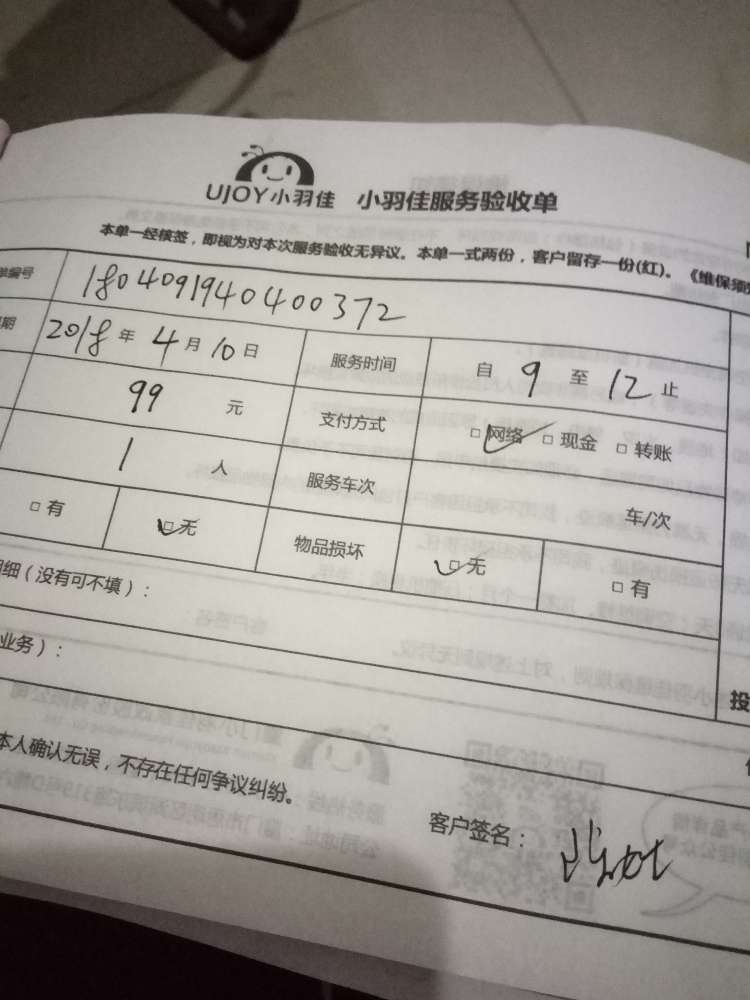 UJOY小羽佳 小羽佳服务验收单
本单一经核签，即视为对本次服务验收无异议。本单一式两份，客户留存一份(红)。《维保须
单编号 180409194040400372
期 2018年 4月 10日 服务时间 自 9 至 12 止
99 元 支付方式 □网络 □现金 □转账
1 人 服务车次 车/次
□有 □无 物品损坏 □无 □有
细（没有可不填）：
业务）：
投
本人确认无误，不存在任何争议纠纷。
客户签名：